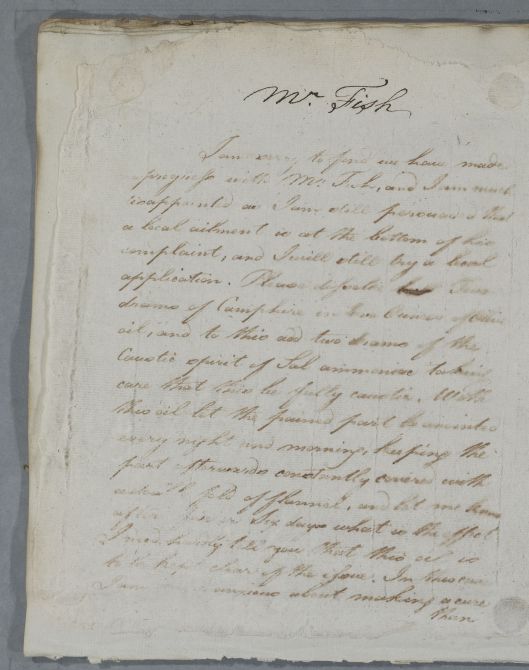 Mr. Fish
I am sorry to find we have made
progress with Mr. Fish, and I am much
disappointed as I am still persuaded that
a local ailment is at the bottom of his
complaint, and I will still try a local
application. Please dissolve Two
drams of Camphire in two Ounces of Olive
oil, and to this add two drams of the
Caustic spirit of Sal ammoniac taking
care that this be fully caustic. With
this oil let the pained part be anointed
every night and morning, keeping the
part afterwards constantly covered with
a fold of flannel, and let me know
after five or Six days what is the effect
I need hardly tell you that this oil is
to be kept clear of the issue. In this case
I am anxious about making a cure
than